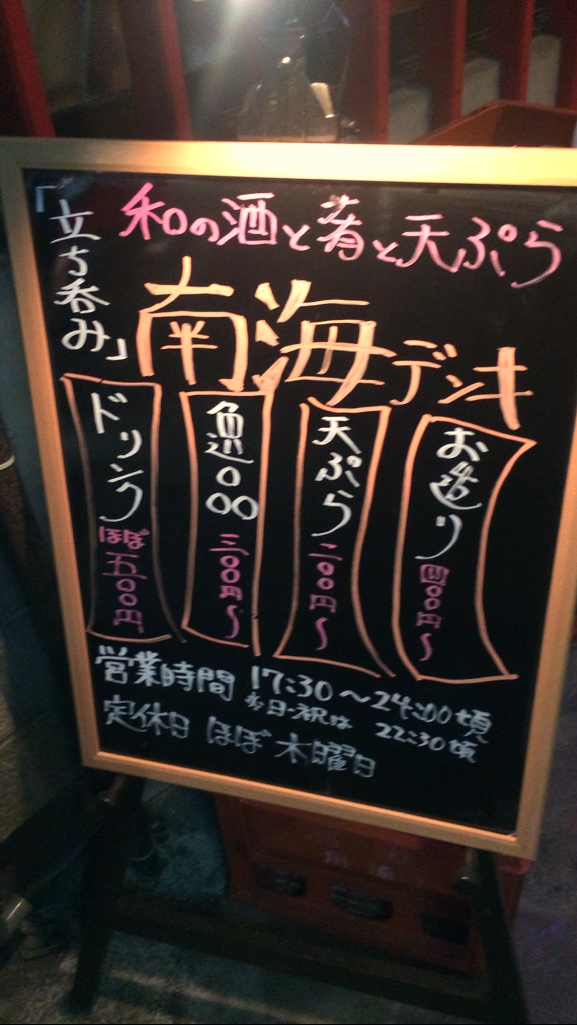 和の酒と肴と天ぷら
「立ち呑み」
南海デンキ
お造り 四〇〇円〜
天ぷら 二〇〇円〜
三〇〇円〜
ドリンク ほぼ五〇〇円
営業時間 17:30〜24:00頃
日・祝は 22:30頃
定休日 ほぼ木曜日